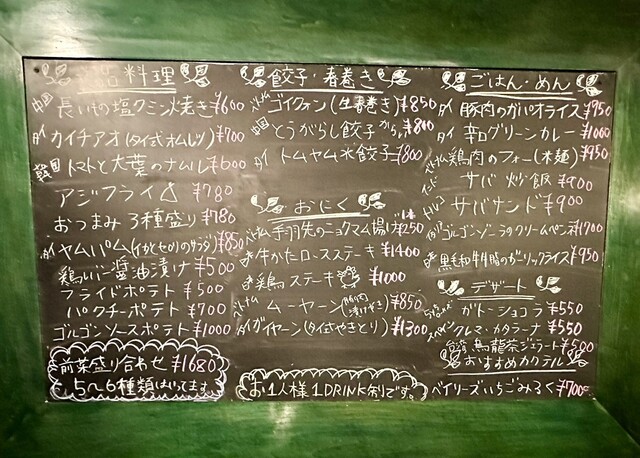 料理
中国 長いもの塩クミン焼き ¥600
タイ カイチアオ(タイ式オムレツ) ¥700
韓国 トマトと大葉のナムル ¥600
アジフライ ¥780
おつまみ3種盛り ¥780
タイ ヤムパム(イカとセロリのサラダ) ¥850
鶏レバー醤油漬け ¥500
フライドポテト ¥500
パクチーポテト ¥700
ゴルゴンソースポテト ¥1000
前菜盛り合わせ ¥1680
5〜6種類はいってます
餃子・春巻き
ベトナム ゴイクォン(生春巻き) ¥850
中国 とうがらし餃子 からい ¥800
タイ トムヤム水餃子 ¥800
おにく
ベトナム 手羽先のニョクマム揚げ 1本 ¥250
牛かたロースステーキ ¥1400
鶏ステーキ ¥1000
ベトナム ムーヤーン ¥850
タイ ガイヤーン(タイ式やきとり) ¥1300
お1人様1DRINK制です。
ごはん・めん
タイ 豚肉のガパオライス ¥950
タイ 辛口グリーンカレー ¥1000
ベトナム 鶏肉のフォー(米麺) ¥950
サバ炒飯 ¥900
トルコ サバサンド ¥900
ゴルゴンゾーラのクリームペンネ ¥1700
黒毛和牛脂のガーリックライス ¥950
デザート
フランス ガトーショコラ ¥550
スペイン クレマ・カタラーナ ¥550
台湾 烏龍茶ジェラート ¥500
おすすめカクテル
ベイリーズいちごみるく ¥700